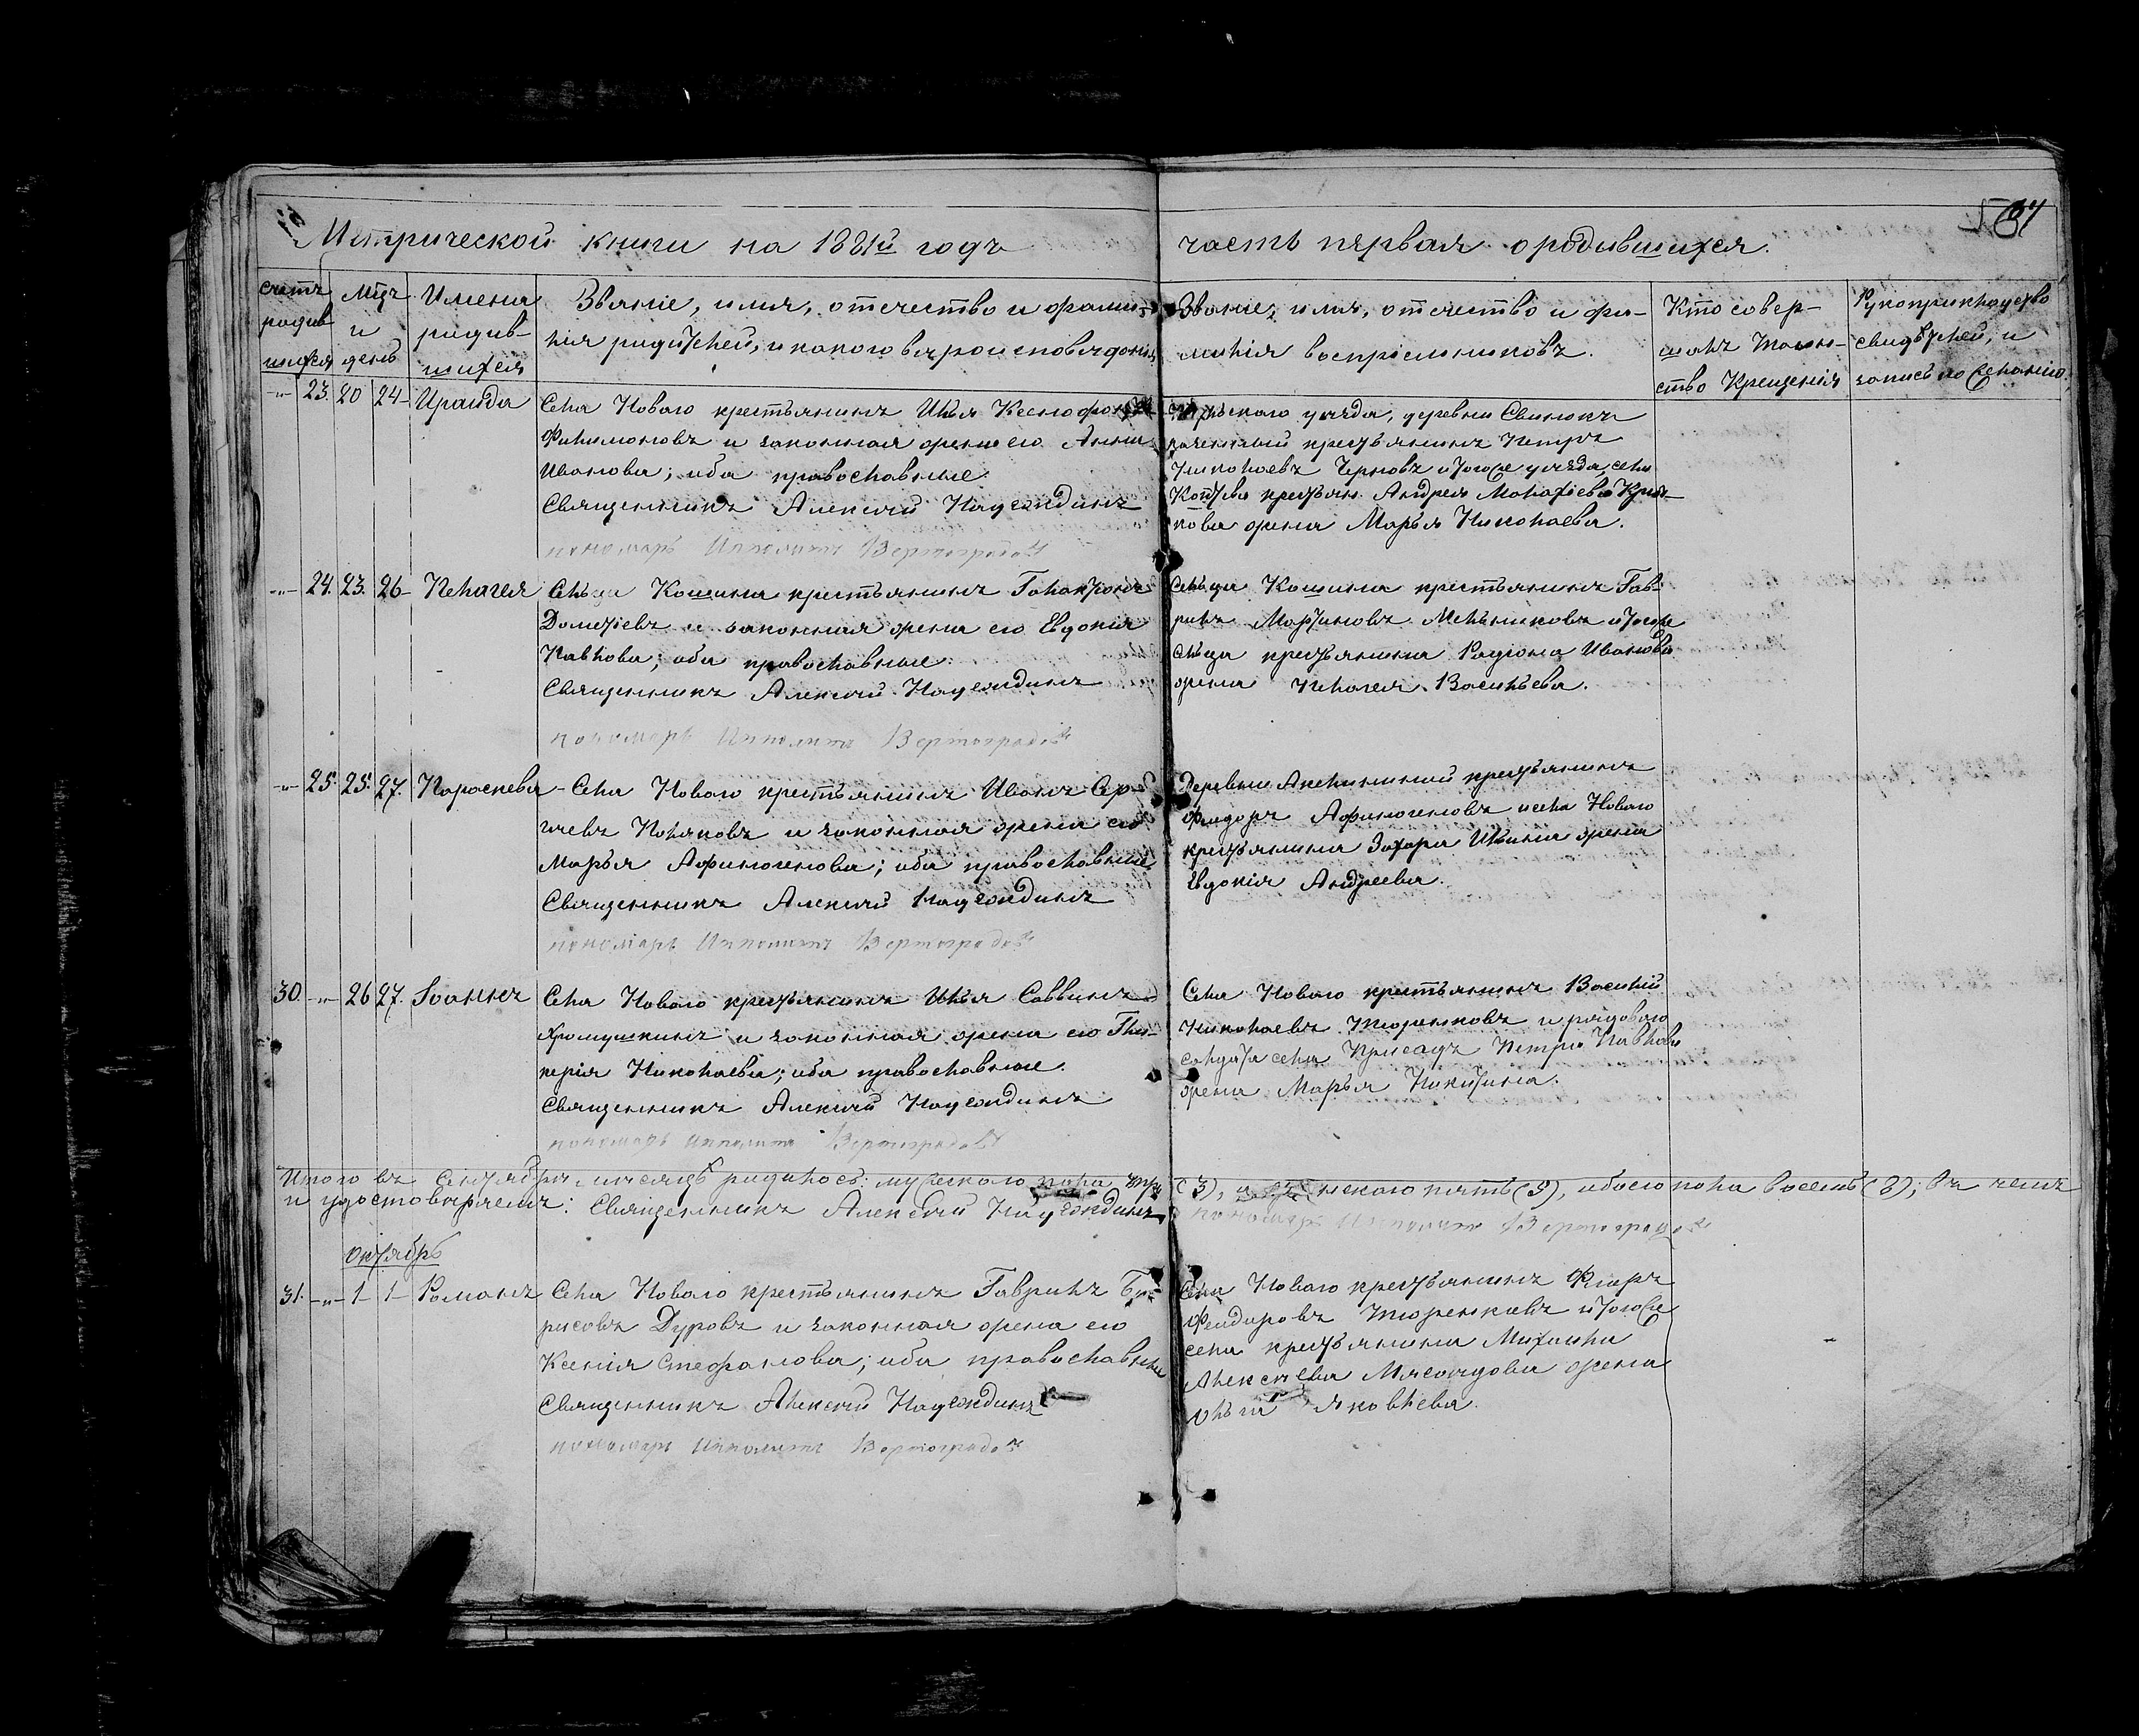 Метрической книги на 1881й годъ
часть первая о родившихся.
счетъ родив шихся
Мцъ и день
Имена родив- шихся
Званіе, имя, отчество и фами-
лія родителей, и какого вѣроисповѣданія
Званіе, имя, отчество и фа-
милія воспріемниковъ.
Кто совер-
шалъ таин-
ство Крещенія
Рукоприкладство
свидѣтелей, и
запись по желанію.
-"- 23. 20 24 Ираида
Села Новаго крестьянинъ Илья
Филимоновъ и законная жена его Анна
Иванова; оба православные.
Священникъ Алексій
пономарь Ипполитъ Вертоградовъ
уѣзда, деревни
крестьянинъ Петръ
Николаевъ Черновъ и тогоже уѣзда, села
крестьян. Андрея
жена Марья Николаева.
-"- 24. 23. 26 Пелагея
Сельца Кошина крестьянинъ Галактіонъ
Дометіевъ и законная жена его Евдокія
Павлова; оба православные.
Священникъ Алексій
пономарь Ипполитъ Вертоградовъ
Сельца Кошина крестьянинъ Гав-
рилъ Мартиновъ Мельниковъ и тогоже
сельца крестьянина Радіона Иванова
жена Пелагея Васильева.
-"- 25. 25. 27. Параскева
Села Новаго крестьянинъ Иванъ Сер-
гѣевъ Поляковъ и законная жена его
Марья Афиногенова; оба православные
Священникъ Алексій
пономарь Ипполитъ Вертоградовъ
Деревни крестьянинъ
Феодоръ Афиногеновъ и села Новаго
крестьянина Захара Ильина жена
Евдокія Андреева.
30. -"- 26 27. Іоаннъ
Села Новаго крестьянинъ Илья Саввинъ
Хромушкинъ и законная жена его Гли-
керія Николаева; оба православные.
Священникъ Алексій
пономарь Ипполитъ Вертоградовъ
Села Новаго крестьянинъ Василій
Николаевъ Тюренковъ и рядоваго
солдата села Присадъ Петра Павлова
жена Марья Никитина.
Итого въ Сентябрѣ мѣсяцѣ родилось: мужескаго пола три
(3), и женскаго пять (5), обоего пола восемь (8); въ чемъ
и удостовѣряемъ: Священникъ Алексій
пономарь Ипполитъ Вертоградовъ
Октябрь
31. -"- 1 1 Романъ
Села Новаго крестьянинъ Гаврилъ Бо-
рисовъ Дуровъ и законная жена его
Ксенія Стефанова; оба православные
Священникъ Алексій
пономарь Ипполитъ Вертоградовъ
Села Новаго крестьянинъ Флоръ
Феодоровъ Тюренковъ и тогоже
села крестьянина Михаила
Алексѣева Мясоѣдова жена
Яковлева.